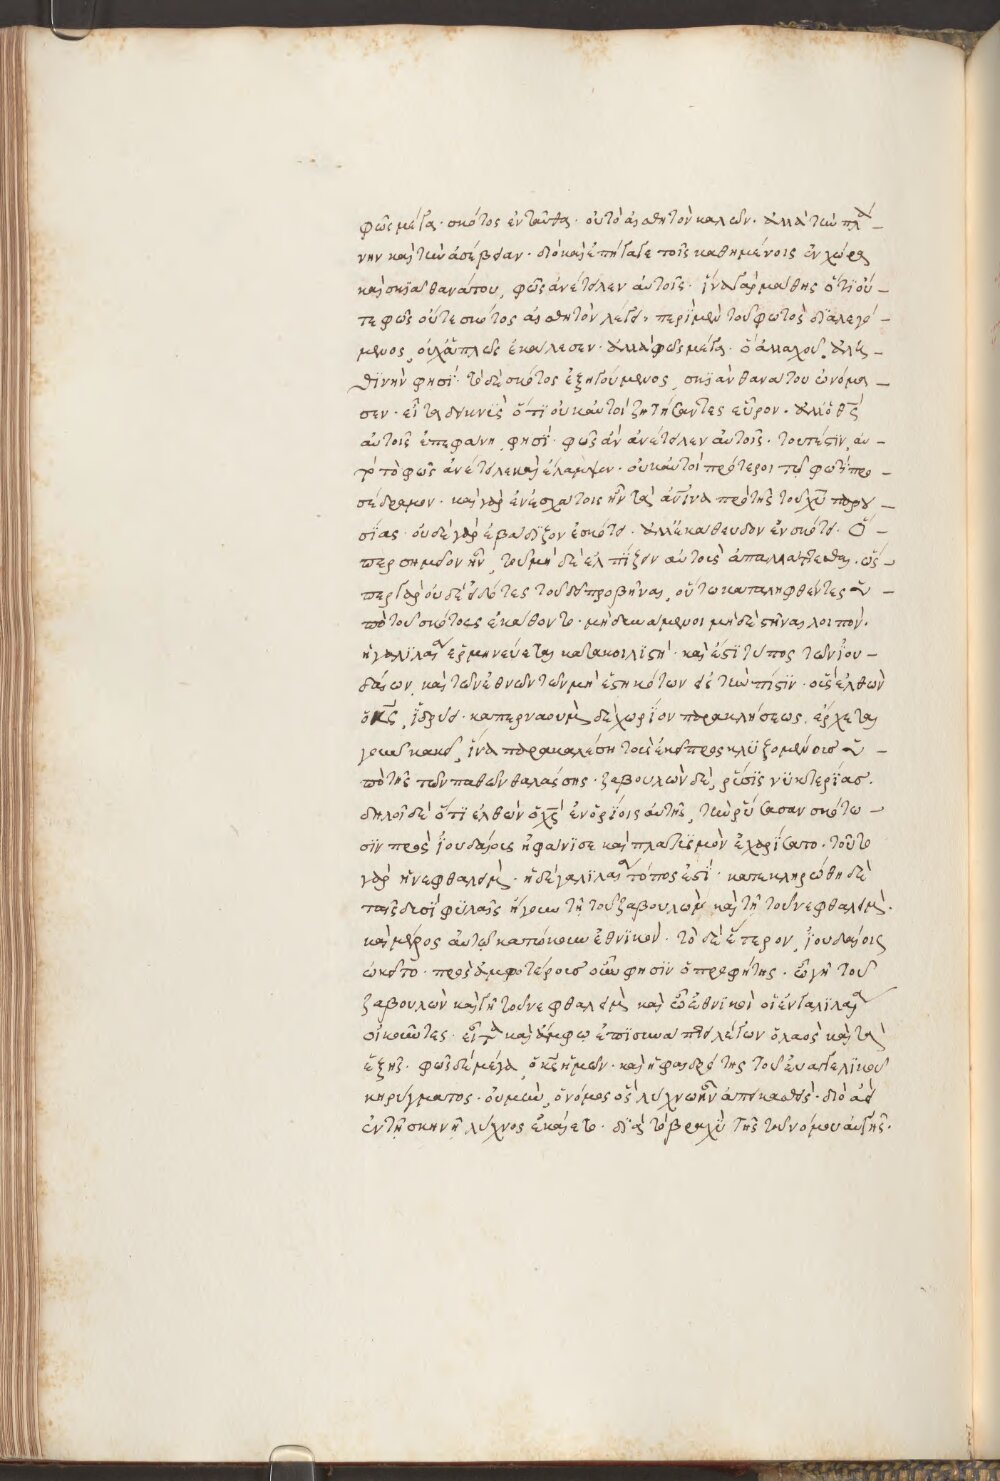 φῶς μέγα· σκότος ἐνταῦθα· οὐ τὸ αἰσθητὸν καλῶν· ἀλλὰ τὴν πλά–
νην καὶ τὴν ἀσέβειαν· διὸ καὶ ἐπήγαγε τοῖς καθημένοις ἐν χώρᾳ
καὶ σκιᾷ θανάτου, φῶς ἀνέτειλεν αὐτοῖς· ἵνα γὰρ μάθης ὅτι οὔ–
τε φῶς οὔτε σκότος αἰσθητὸν λέγει· περὶ μὲν τοῦ φωτὸς διαλεγό–
μενος, οὐχ ἁπλῶς ἐκάλεσεν· ἀλλὰ φῶς μέγα· ὃ ἀλλαχοῦ, ἀλη–
θινὴν φησί· τὸ δὲ σκότος ἐξηγούμενος, σκιὰν θανάτου ὠνόμα–
σεν· εἶτα δεικνὺς ὅτι οὐκ αὐτοὶ ζητήσαντες εὗρον· ἀλλ' ὁ θς
αὐτοῖς ἐπεφάνη, φησί· φῶς ἀνέτειλεν αὐτοῖς· τουτέστιν, αὐ–
τὸ τὸ φῶς ἀνέτειλε καὶ ἔλαμψεν· οὐκ αὐτοὶ πρότεροι τῷ φωτὶ προ–
σέδραμον· καὶ γὰρ ἐν ἐσχάτοις ἦν τὰ ἀνινα πρὸ τῆς τοῦ χυ παρου–
σίας· οὐδὲ γὰρ ἐβάδιζον ἐν σκότει· ἀλλ' ἐκάθευδον ἐν σκότει· ὅ–
περ σημεῖον ἦν, τοῦ μὴ δὲ ἐλπίζειν αὐτοὺς ἀπαλλαγήσεσθαι· ὥσ–
περ γὰρ οὐδὲ εἰδότες ποῦ δεῖ προβῆναι, οὕτω καταληφθέντες ὑ–
πὸ τοῦ σκότους ἐκάθοντο· μὴ δυνάμενοι μηδὲ στῆναι λοιπόν·
ἡ γαλιλαία ἑρμηνεύεται κατακοιλιστή· καὶ ἔστι τύπος τῶν ἰου–
δαίων, καὶ τῶν ἐθνῶν τῶν μὴ ἑστηκότων εἰς τὴν πίστιν· οἷς ἐλθὼν
ὁ κς, ἱδρύει· καπερναοὺμ δὲ χωρίον παρακλήσεως, ἔρχεται
γοῦν κακεῖ, ἵνα παρακαλέσῃ τοὺς ἐκεῖ προσκλυζομένους ὑ–
πὸ τῆς τῶν παθῶν θαλάσσης· ζαβουλὼν δὲ, ῥύσις νυκτερίας·
δηλοῖ δὲ ὅτι ἐλθὼν ὁ χς ἐν ὁρίοις αὐτῆς, τὴν ῥύσασαν σκότω–
σιν πρὸς ἰουδαίους ἠφάνισε καὶ πλατυσμὸν ἐχαρίσατο· τοῦτο
γὰρ ἡ νεφθαλείμ· ἡ δὲ γαλιλαία τόπος ἐστί· κατεκληρώθη δὲ
ταῖς δυσὶ φυλαῖς ἤγουν τῇ τοῦ ζαβουλὼν καὶ τῇ τοῦ νεφθαλείμ·
καὶ μέρος αὐτῶν κατώκουν ἐθνικοί· τὸ δὲ ἕτερον, ἰουδαίοις
ᾠκεῖτο· πρὸς ἀμφοτέρους οὖν φησὶν ὁ προφήτης· ὦ γῆ τοῦ
ζαβουλὼν καὶ γῆ τοῦ νεφθαλείμ καὶ ὦ ἐθνικοὶ οἱ ἐν γαλιλαία
οἰκοῦντες· εἶτα καὶ ἄμφω ἐπισυνάπτει λέγων ὁ λαὸς καὶ τὰ
ἑξῆς· φῶς δὲ μέγα, ὁ κς ἡμῶν· καὶ ἡ φαιδρότης τοῦ εὐαγγελικοῦ
κηρύγματος· οὐ μὴν, ὁ νόμος ὃς λύχνῳ ἦν ἀπεικασθείς· διὸ ἀεὶ
ἐν τῇ σκηνῇ λύχνος ἐκαίετο· διὰ τὸ βραχὺ τῆς τοῦ νόμου αὐγῆς·